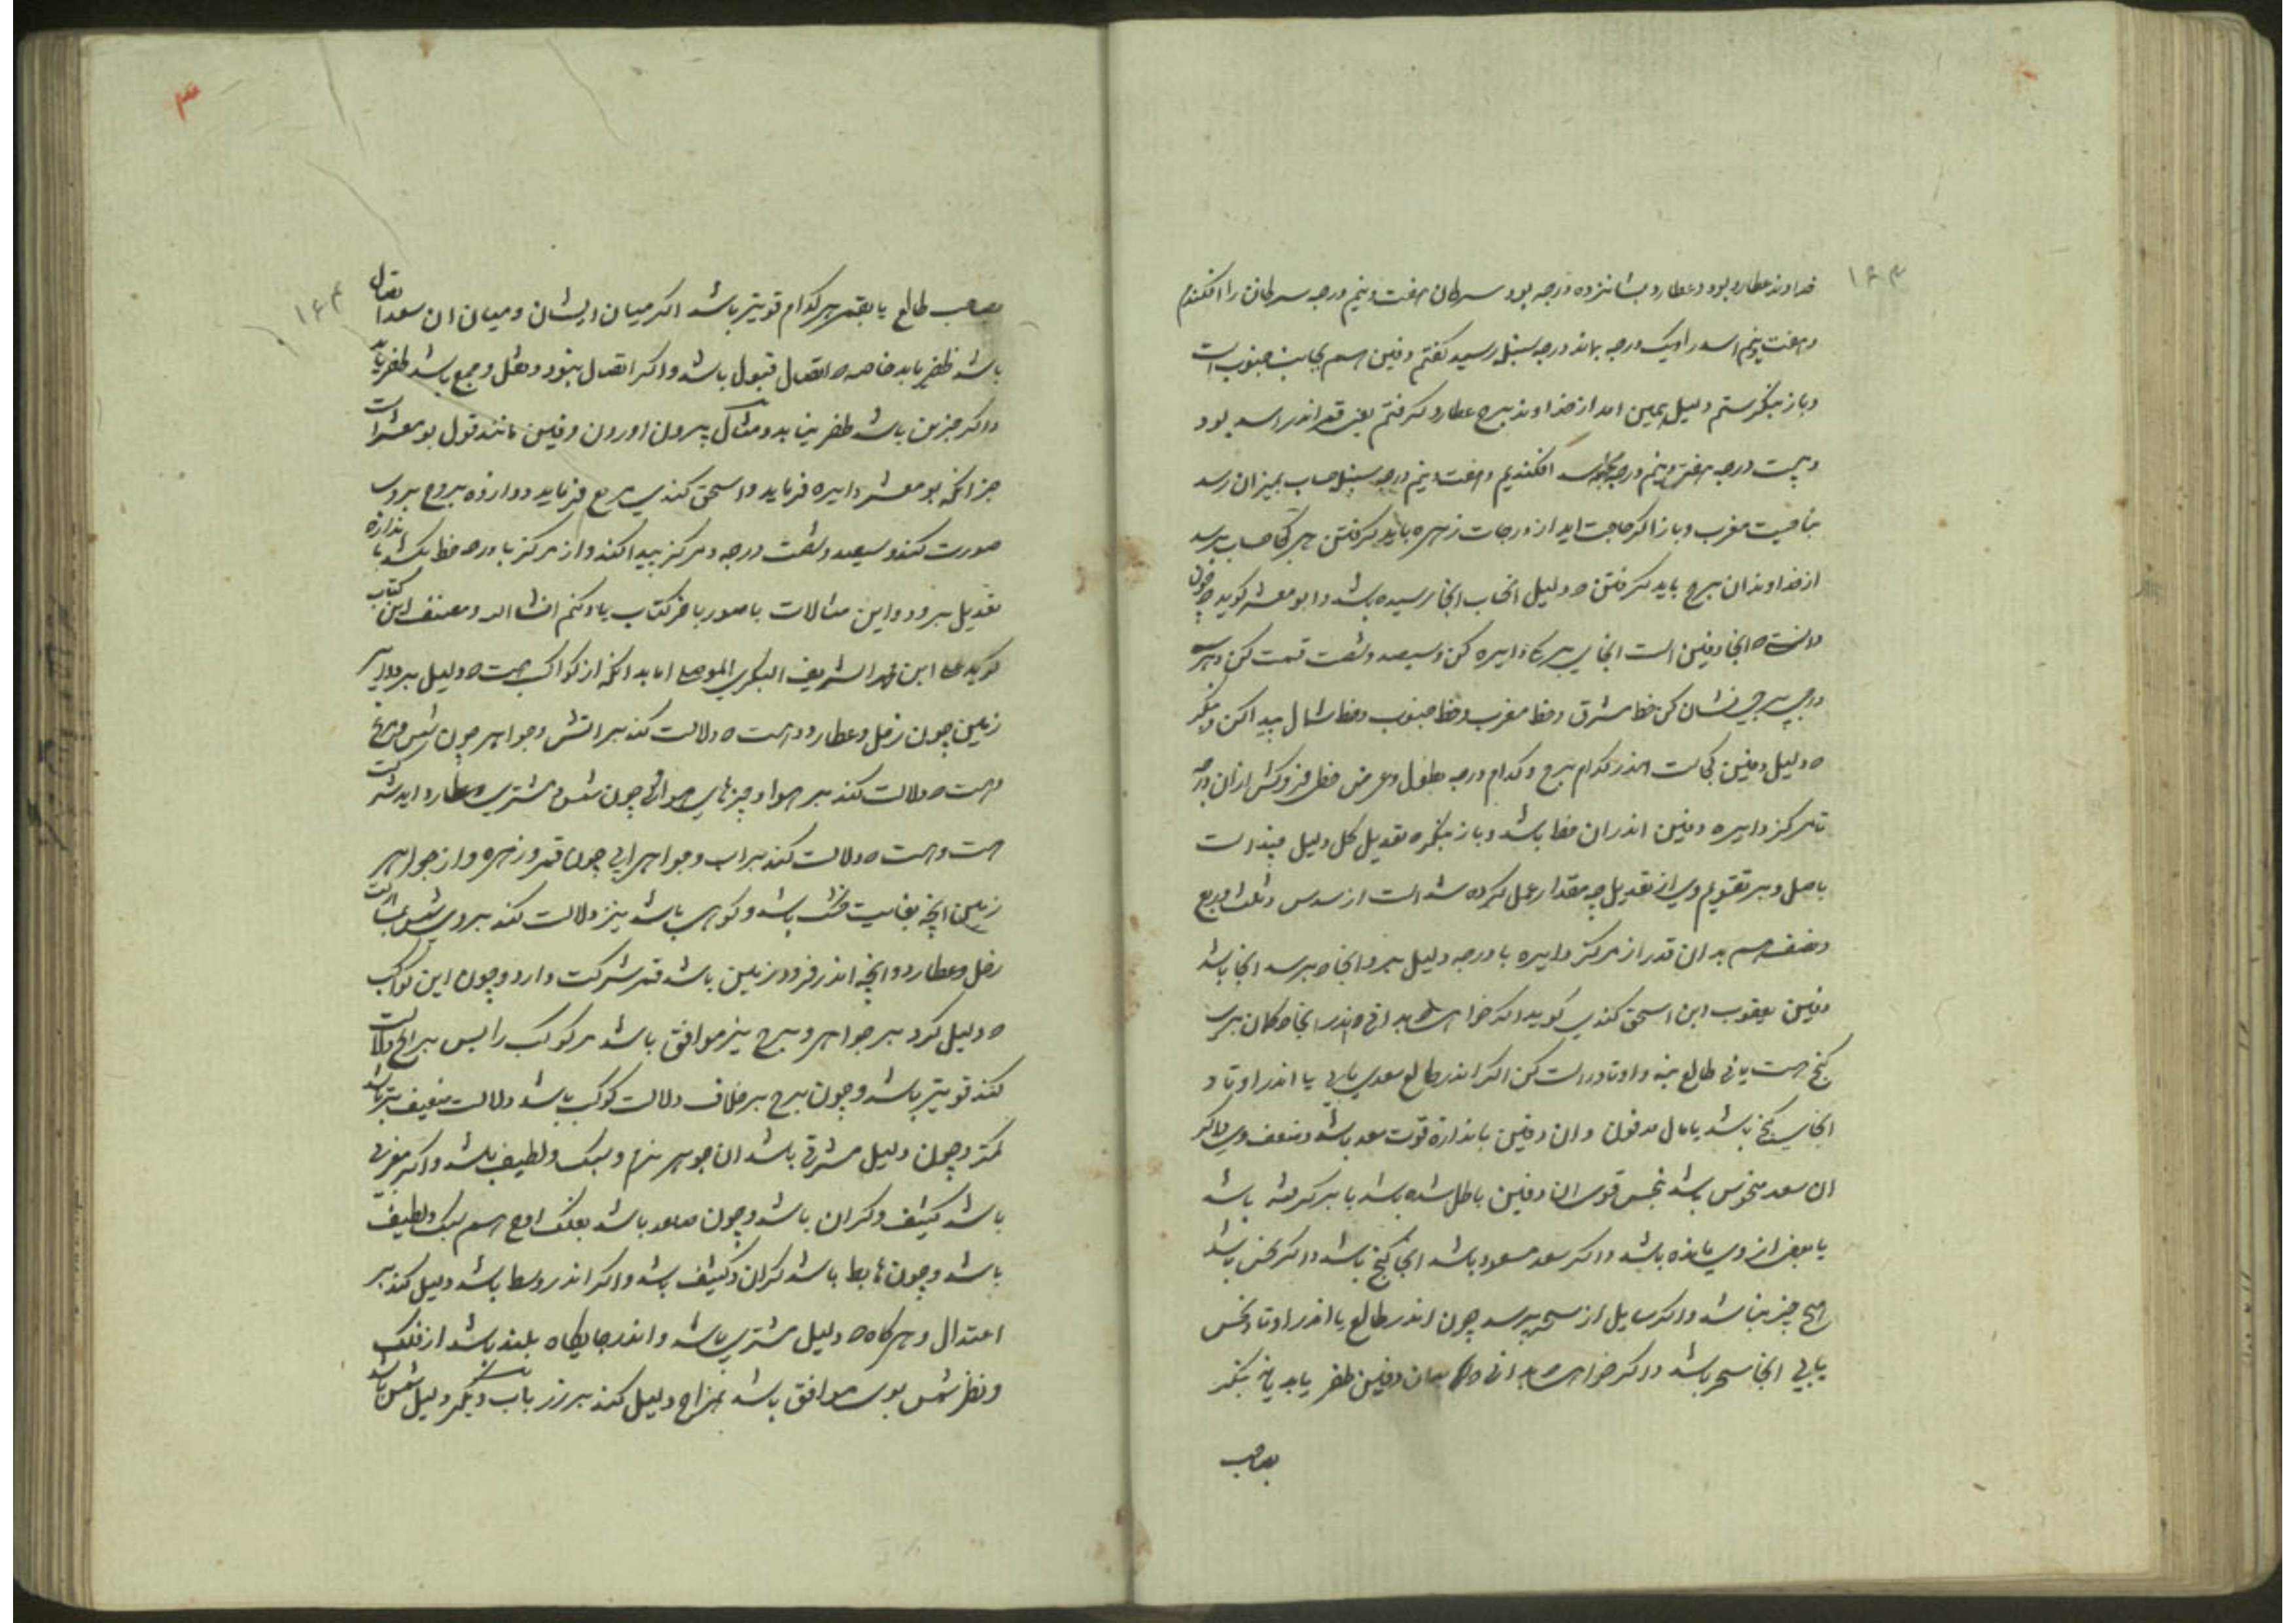 ۱۶۳
خداوند عطارد بود و عطارد بشانزده درجه بود سرطان هفت و نیم درجه سرطان را افکندم
و هفت و نیم اسد را و یک درجه بماند درجه سنبل رسید کفتم دفین هم بجانب جنوب است
و باز بنکرستم دلیل همین امد از خداوند برج عطارد کرفتم یعنی قمر اندر اسد بود
و بیست درجه هفت و نیم درجه افکندیم و هفت و نیم درجه سنبل حساب بمیزان رسد
بناحیت مغرب و باز اکر حاجت اید از درجات زهره باید کرفتن هر کجا حساب برسد
از خداوندان برج باید کرفتن که دلیل انجاب انجا رسیده باشد و ابو معشر کوید چون
دانست که انجا دفین است انجای دایره کن و سیصد و شصت قسمت کن و بهر
درجی نشان کن خط مشرق و خط مغرب و خط جنوب و خط شمال پیدا کن و بنکر
که دلیل دفین کجاست اندر کدام برج و کدام درجه طول و عرض خطی فرو کش از ان درجه
تا مرکز دایره دفین اندر ان خط باشد و باز بنکر که تعدیل کل دلیل چند است
باصل و بر تقویم وی از تعدیل چه مقدار عمل کرده شد است از سدس و ثلث و ربع
و نصف هم بدان قدر از مرکز دایره با درجه دلیل برو انجا که برسد انجا باشد
دفین یعقوب ابن اسحق کندی کوید اکر خواهی که بدانی که اندر انجا که کمان بری
کنج هست یا نی طالع بنه و اوتاد راست کن اکر اندر طالع سعدی یابی یا اندر اوتاد
انجای کنج باشد یا مال مدفون و ان دفین باندازه قوت سعد باشد و ضعف وی و اکر
ان سعد منحوس باشد بنحس قوی ان دفین باطل شده باشد یا بر کرفته باشد
یا بعضی از وی مانده باشد و اکر سعد مسعود باشد انجا کنج باشد و اکر نحس باشد
هیچ چیز نباشد و اکر سایل از سحر پرسد چون اندر طالع یا اندر اوتاد نحس
یابی انجا سحر باشد و اکر خواهی که بدانی که بدان دفین ظفر یابد یا نی بنکر
بصاحب
۱۶۴
بصاحب طالع یا بقمر هر کدام قویتر باشد اکر میان ایشان و میان ان سعد اتصال
باشد ظفر یابد خاصه که اتصال قبول باشد و اکر اتصال نبود و نقل و جمع باشد ظفر یابد
و اکر جزین باشد ظفر نیابد و مثال بیرون اوردن دفین مانند قول بو معشر است
جز انکه بو معشر دایره فرماید و اسحق کندی مربع فرماید دوازده بروج بروی
صورت کند و سیصد و شصت درجه و مرکز پیدا کند و از مرکز با درجه خط بکشد باندازه
تعدیل برود و این مثالات با صور باخر کتاب یاد کنم انشا الله و مصنف این کتاب
کوید علی ابن الشریف البکری الموصلی اما بدانکه از کواکب هست که دلیل بر جواهر
زمین چون زحل و عطارد و هست که دلالت کند بر اتش و جواهر چون شمس و مریخ
و هست که دلالت کند بر هوا و چیزهای هوائی چون شمس و مشتری و عطارد اید شرکت
هست و هست که دلالت کند بر اب و جواهر ابی چون قمر و زهره و از جواهر
زمین انچه بغایت خشک باشد و کوهی باشد نیز دلالت کند بر وی شمس
زحل و عطارد و انچه اندر فرود زمین باشد قمر شرکت دارد و چون این کواکب
که دلیل کرد بر جواهر و برج نیز موافق باشد مر کوکب را پس بر انچ دلالت
کند قویتر باشد و چون برج بر خلاف دلالت کوکب باشد دلالت ضعیف تر باشد
کمتر و چون دلیل مشرقی باشد ان جوهر نرم و سبک و لطیف باشد و اکر مغربی
باشد کثیف و کران باشد و چون صاعد باشد بفلک اوج هم سبک و لطیف
باشد و چون هابط باشد کران و کثیف باشد و اکر اندر وسط باشد دلیل کند بر
اعتدال و هر کاه که دلیل مشتری باشد و اندر جایکاه بلند باشد از فلک
و نظر شمس بوی موافق باشد بمزاج دلیل کند بر زر باب دیکر دلیل شمس باشد